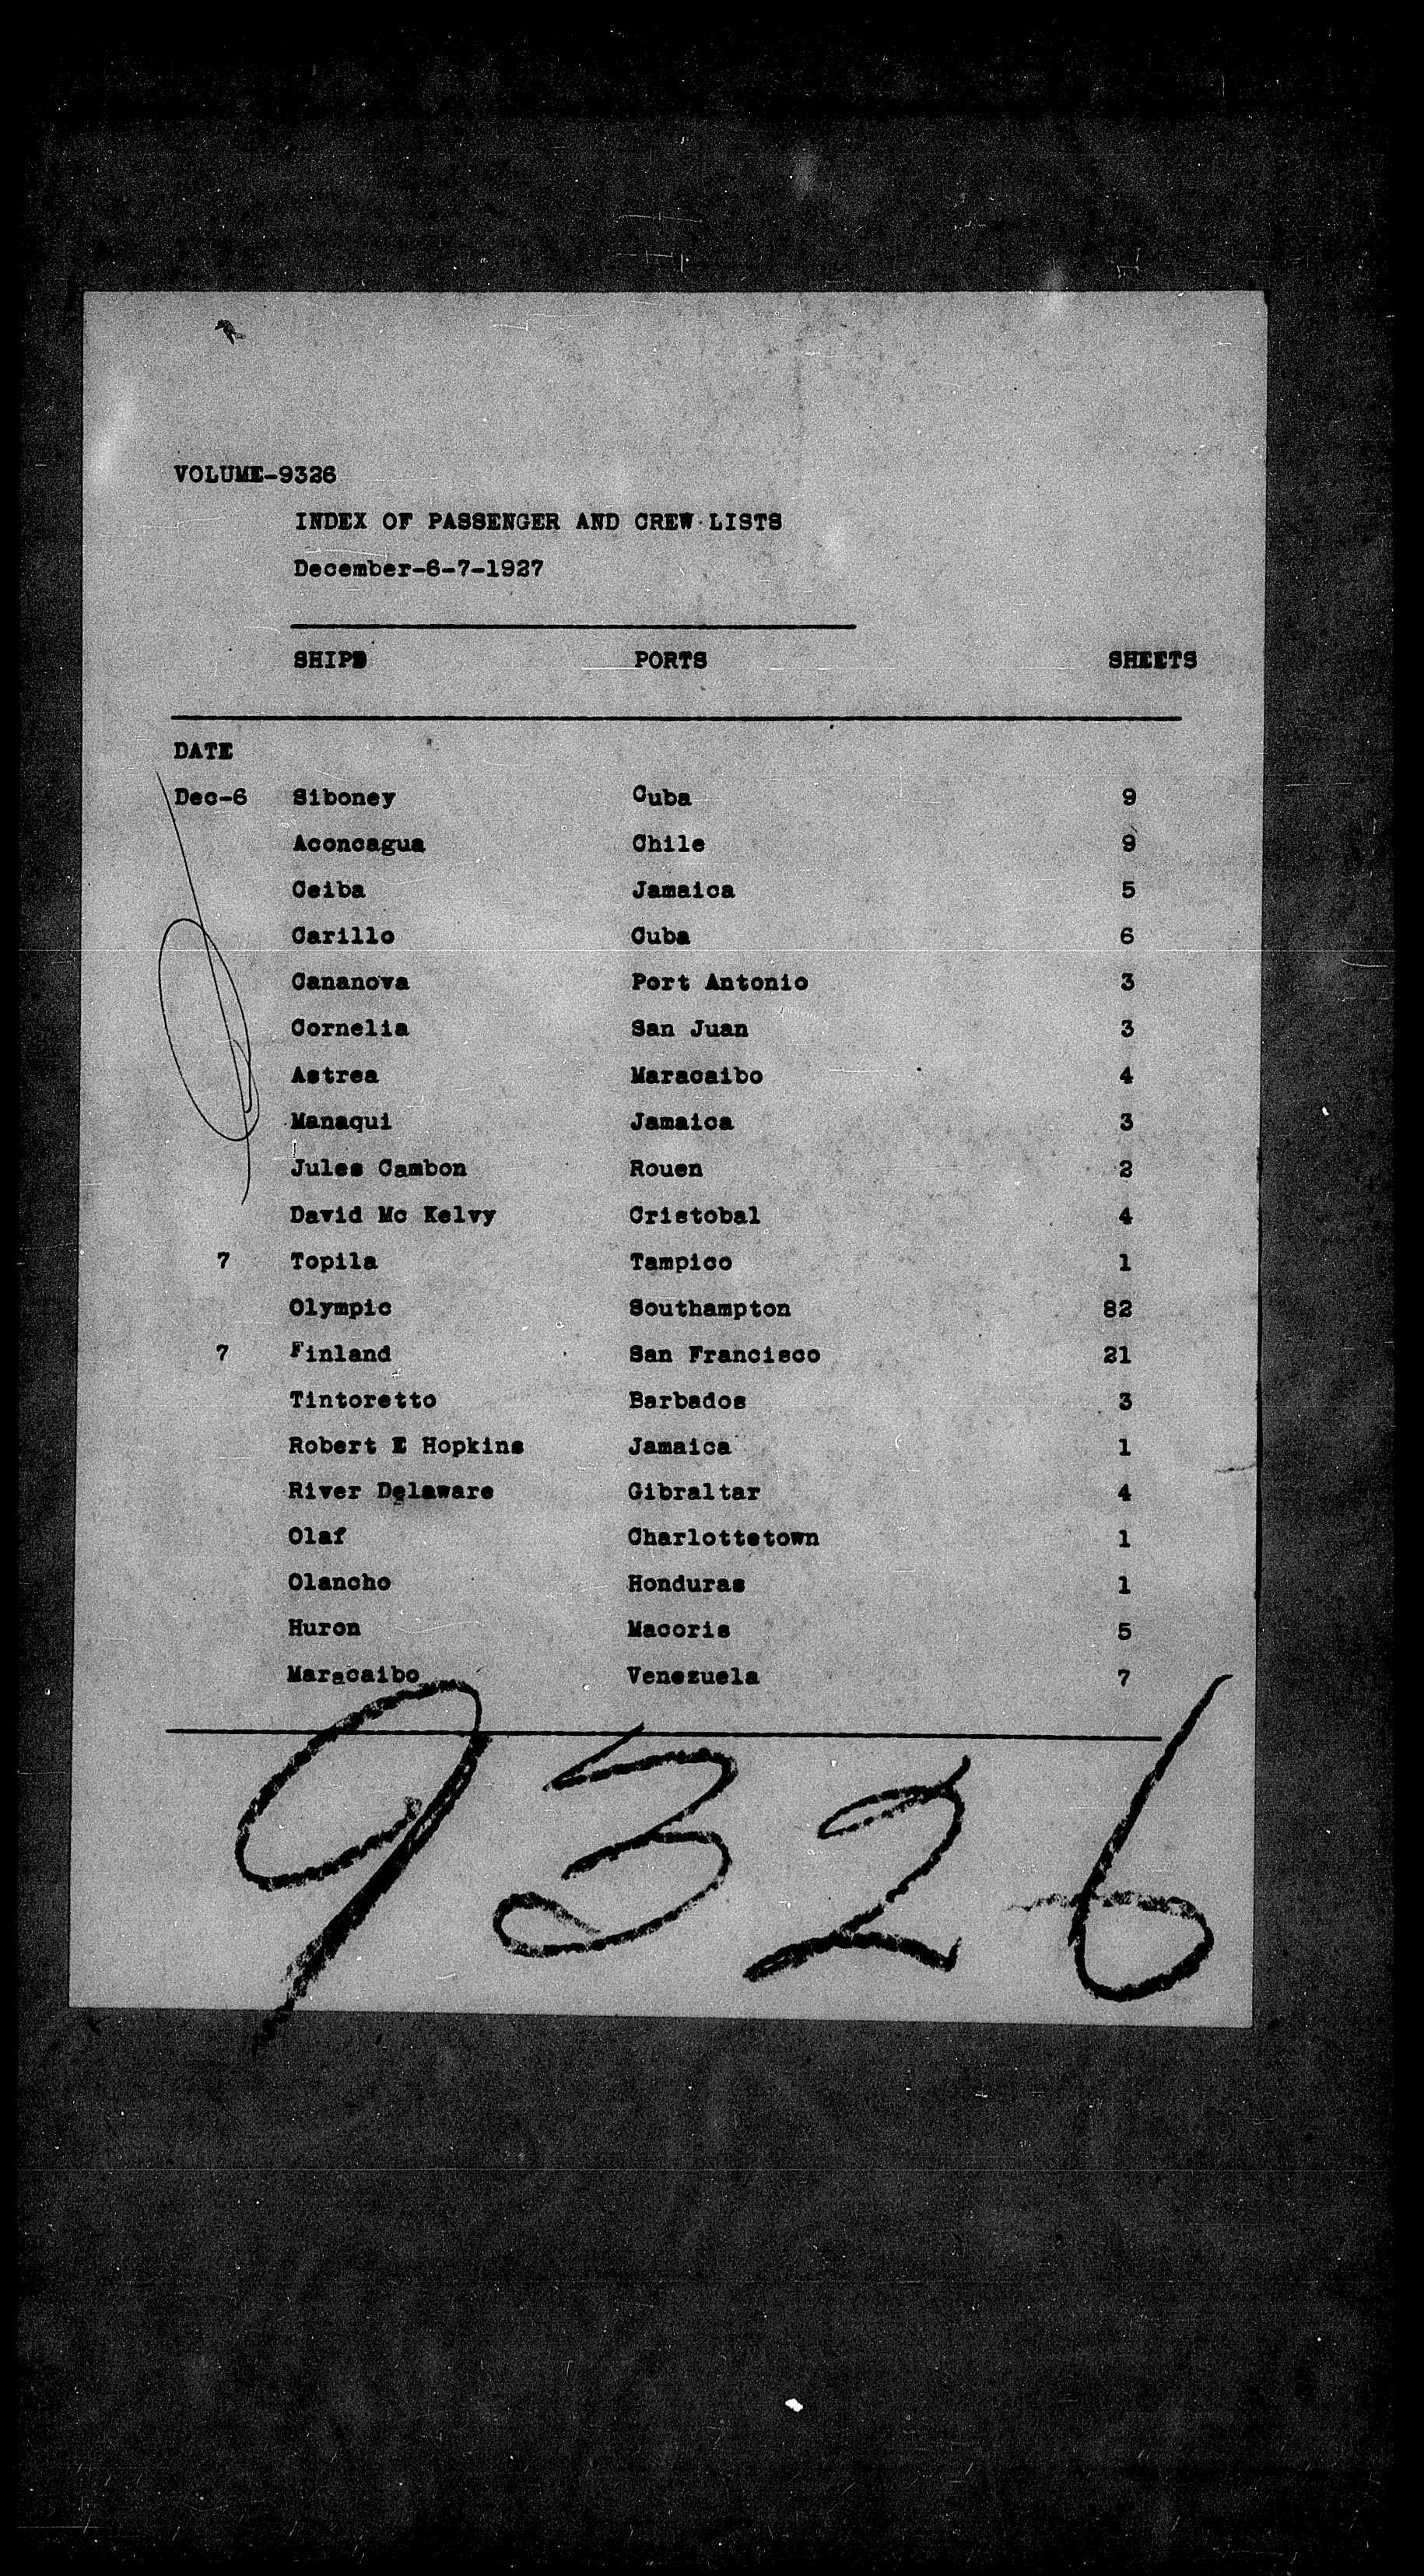 VOLUME-9326
INDEX OF PASSENGER AND CREW LISTS
December-6-7-1927
SHIPS PORTS SHEETS
DATE
Dec-6 Siboney Cuba 9
Aconcagua Chile 9
Ceiba Jamaica 5
Carillo Cuba 6
Cananova Port Antonio 3
Cornelia San Juan 3
Astrea Maracaibo 4
Managui Jamaica 3
Jules Cambon Rouen 2
David Mc Kelvy Cristobal 4
7 Topila Tampico 1
Olympic Southampton 82
7 Finland San Francisco 21
Tintoretto Barbados 3
Robert E Hopkins Jamaica 1
River Delaware Gibraltar 4
Olaf Charlottetown 1
Olancho Honduras 1
Huron Macoris 5
Maracaibo Venezuela 7
9326